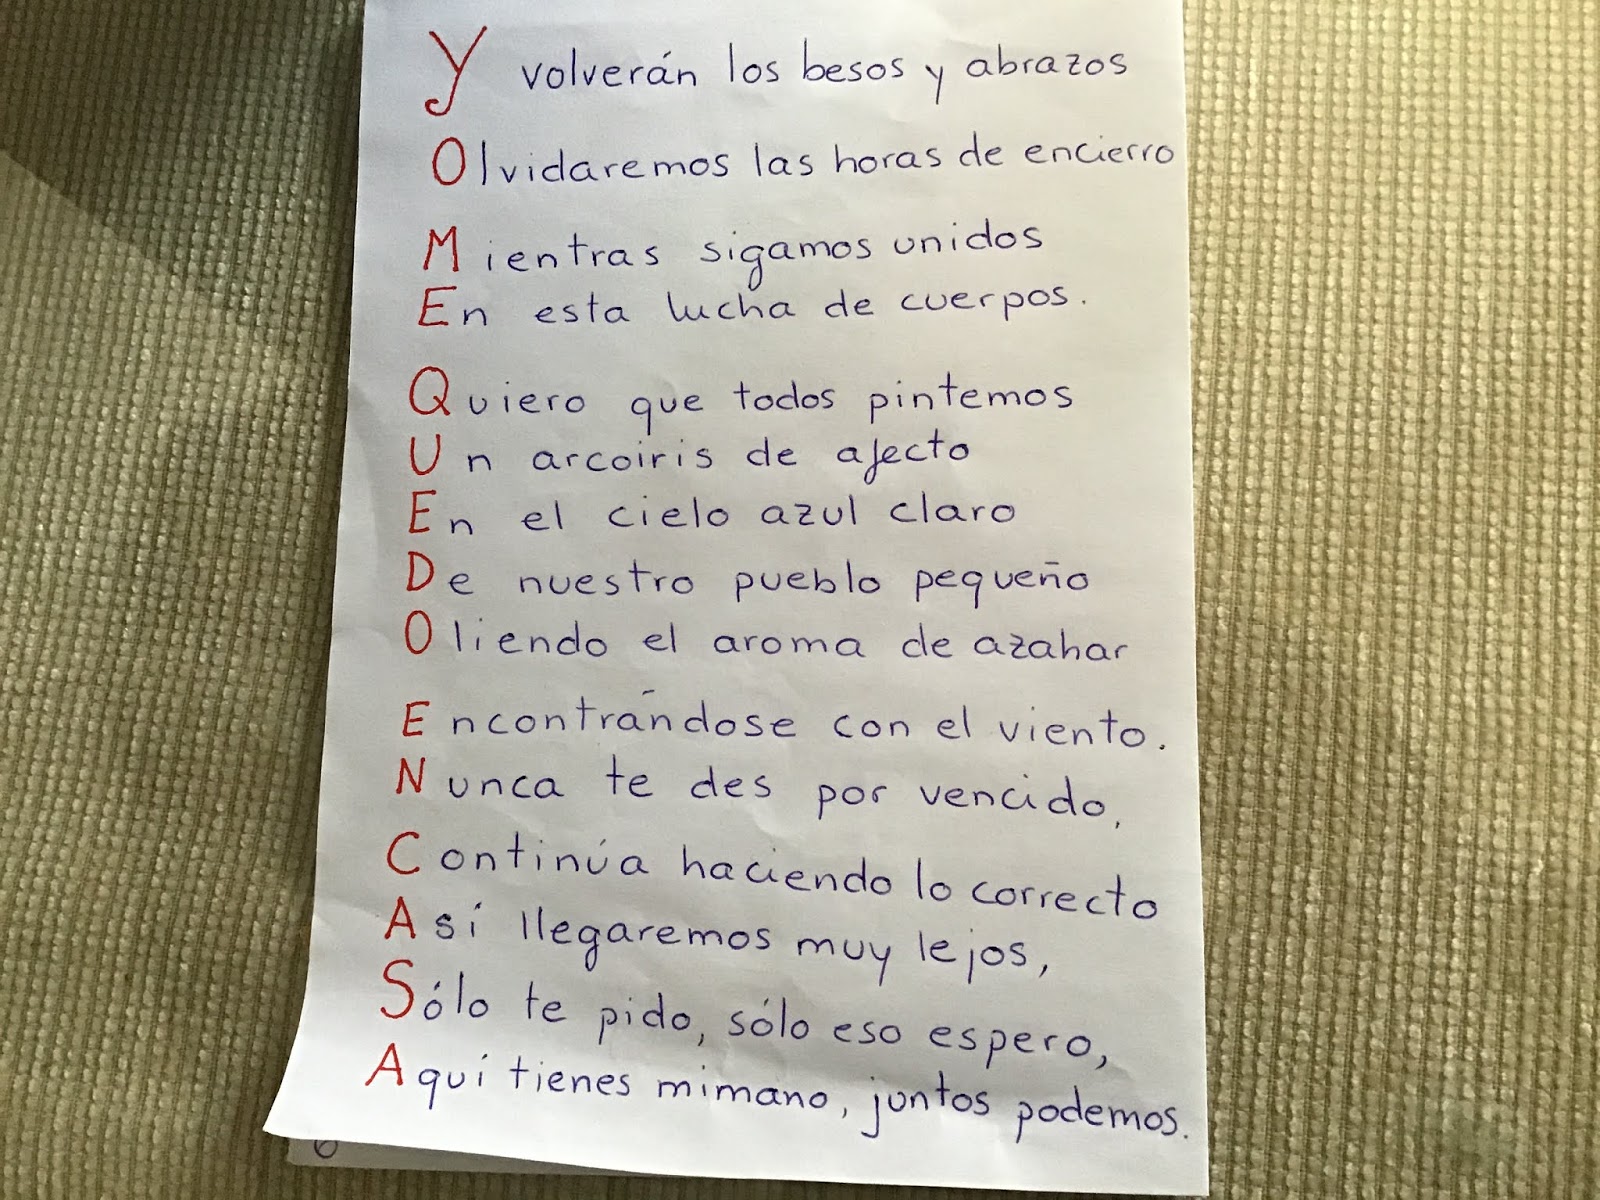 Y volverán los besos y abrazos
Olvidaremos las horas de encierro
Mientras sigamos unidos
En esta lucha de cuerpos.
Quiero que todos pintemos
Un arcoiris de afecto
En el cielo azul claro
De nuestro pueblo pequeño
Oliendo el aroma de azahar
Encontrándose con el viento.
Nunca te des por vencido,
Continúa haciendo lo correcto
Así llegaremos muy lejos,
Sólo te pido, sólo eso espero,
Aquí tienes mi mano, juntos podemos.